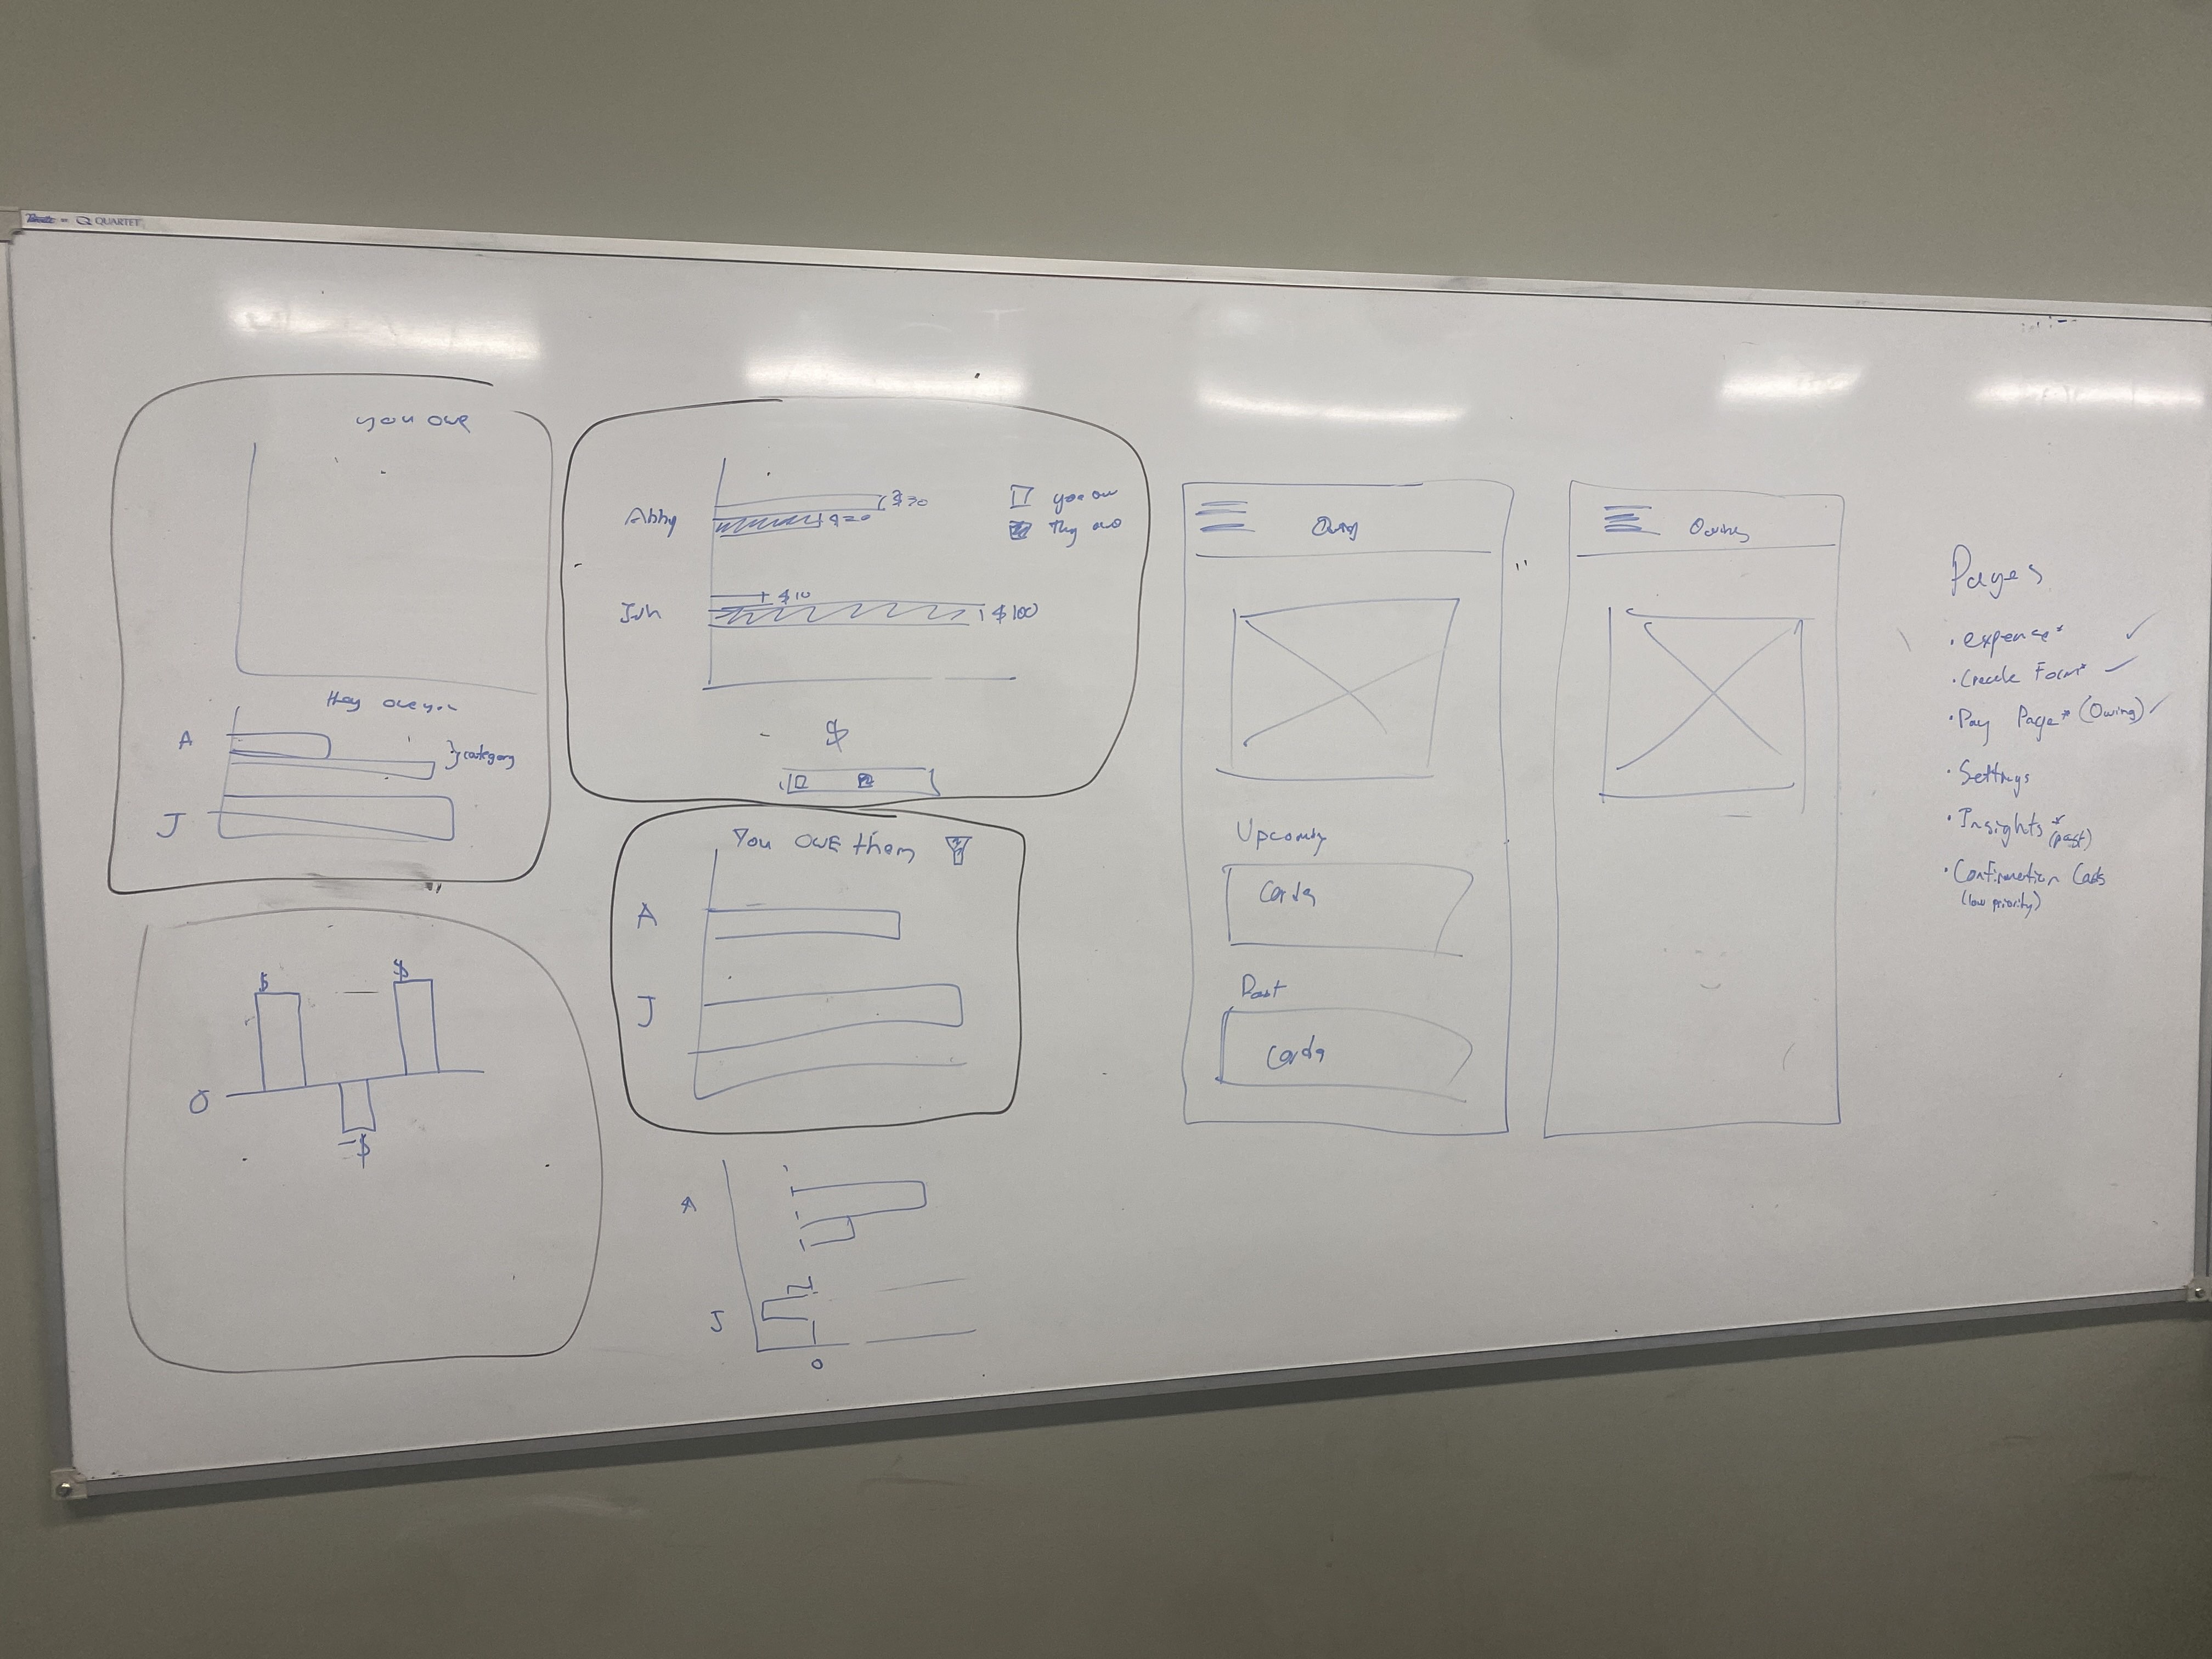 QUARTET
you owe
they owe you
A
} category
J
Abby
$20
you ow
they ow
John
$10
$100
$
You owe them
A
J
$
$
0
-$
A
J
0
Owing
Upcoming
Cards
Past
Cards
Owing
Pages
• expense* ✓
• Create Form* ✓
• Pay Page* (Owing) ✓
• Settings
• Insights* (past)
• Confirmation Cards
(low priority)